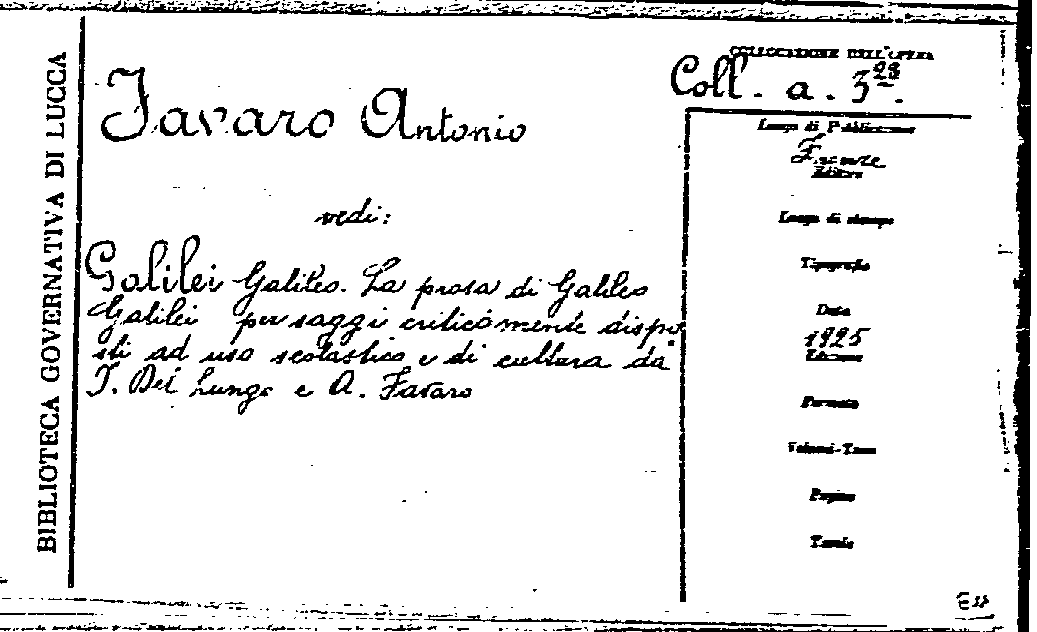 BIBLIOTECA GOVERNATIVA DI LUCCA
COLLOCAZIONE DELL'OPERA
Coll. a. 3
Favaro Antonio
vedi:
Galilei Galileo. La prosa di Galileo
Galilei per saggi criticamente dispo
sti ad uso scolastico e di cultura da
I. Del Lungo e A. Favaro
Luogo di Pubblicazione
Firenze
Editore
Luogo di stampa
Tipografia
Data
1925
Edizione
Formato
Volumi-Tomi
Pagine
Tavole